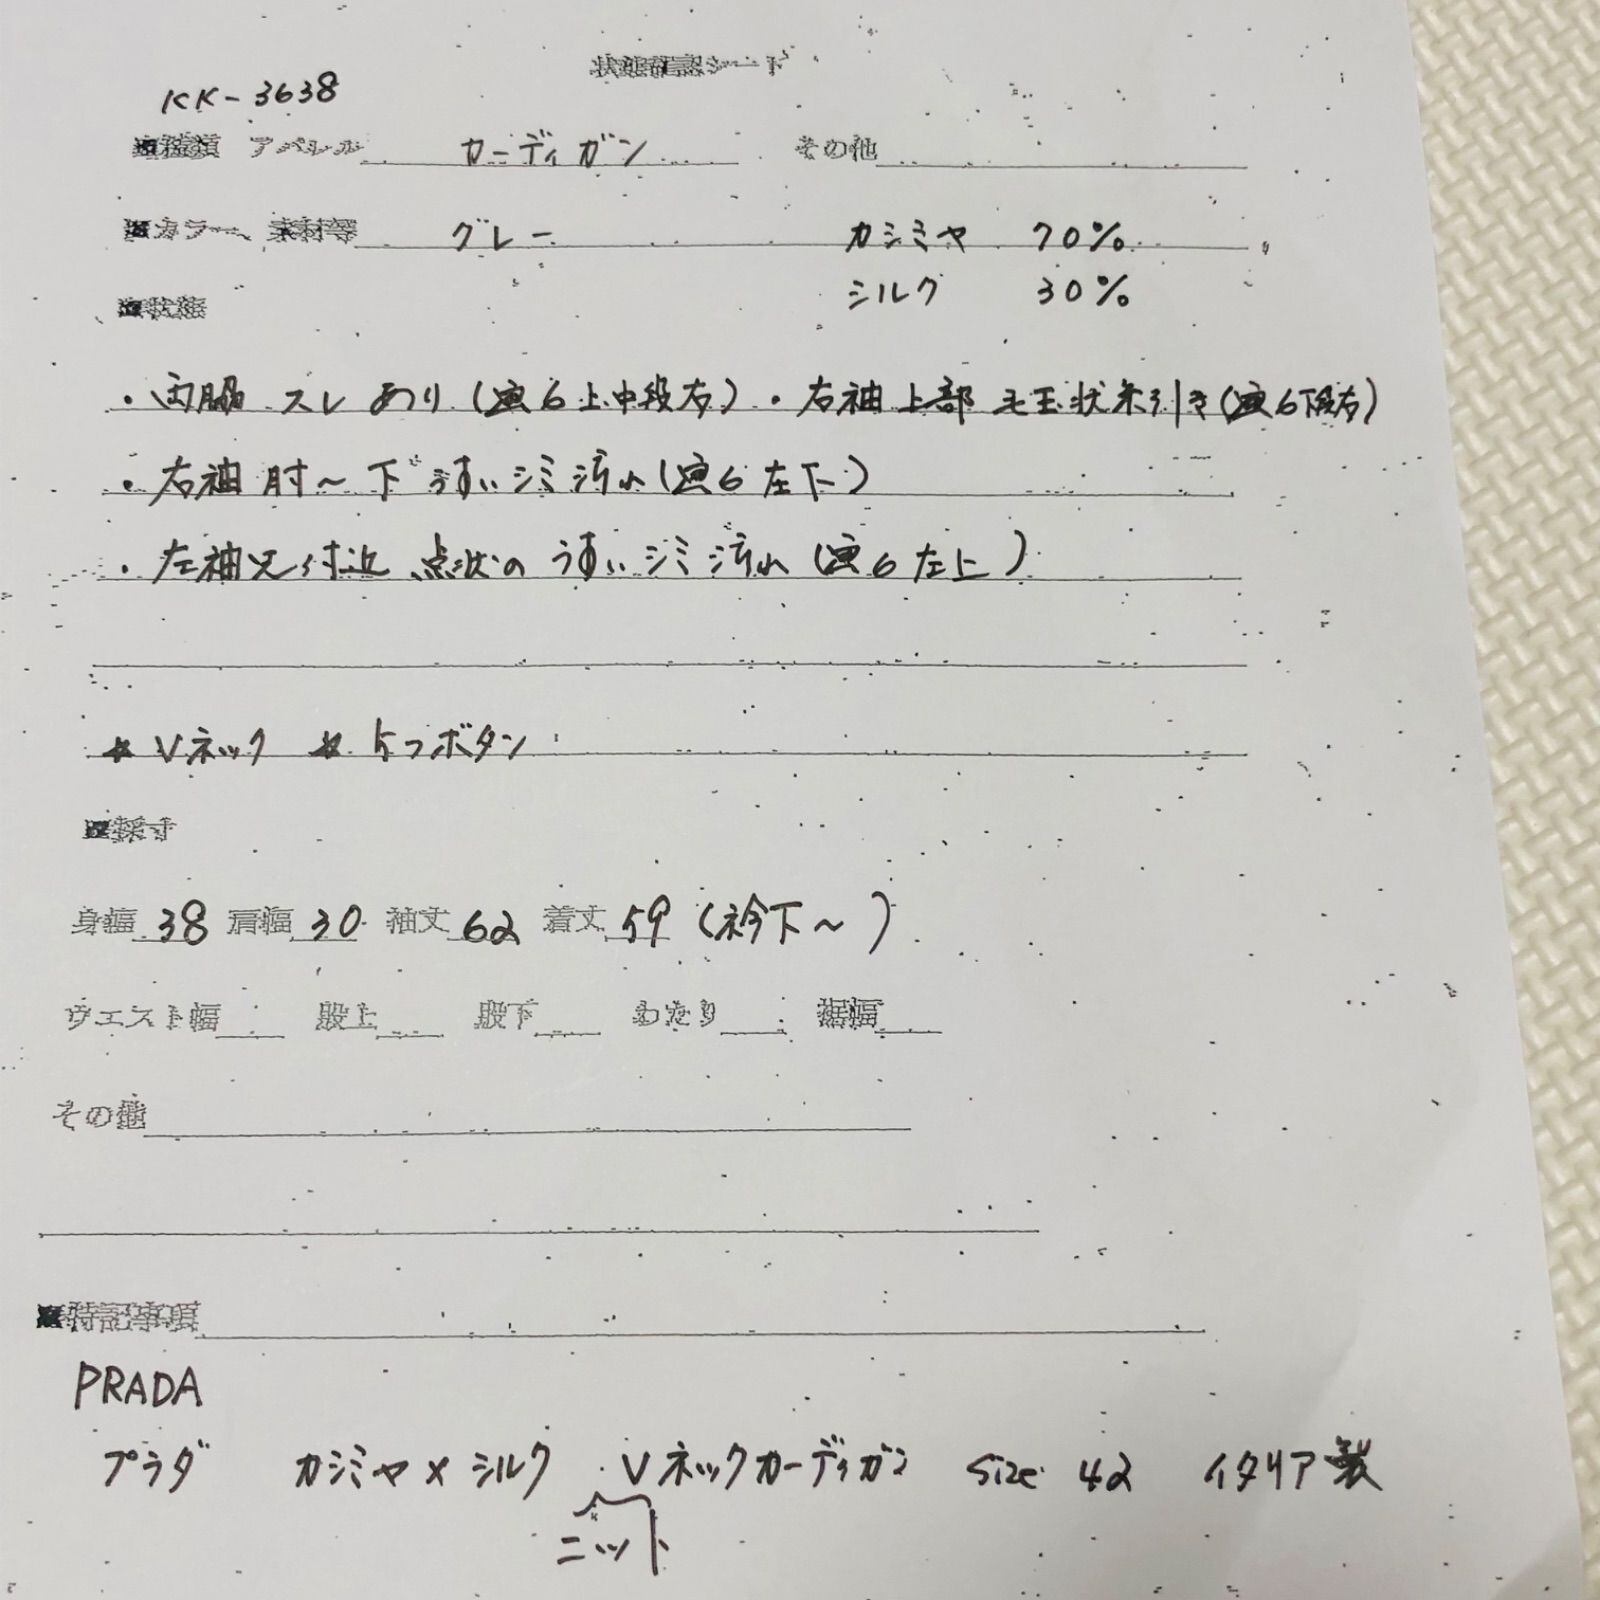 状態確認シート
KK-3638
■種類 アパレル カーディガン その他
■カラー、素材等 グレー カシミヤ 70%
シルク 30%
■状態
・両脇 スレあり(画6上中段右)・右袖上部 毛玉状糸引き(画6下段右)
・右袖 肘〜下 うすいシミ汚れ(画6左下)
・左袖口付近 点状の うすいシミ汚れ(画6左上)
* Vネック * 5つボタン
■採寸
身幅 38 肩幅 30 袖丈 62 着丈 59 (衿下〜)
ウエスト幅 股上 股下 わたり 裾幅
その他
■特記事項
PRADA
プラダ カシミヤ×シルク Vネックカーディガン size 42 イタリア製
ニット